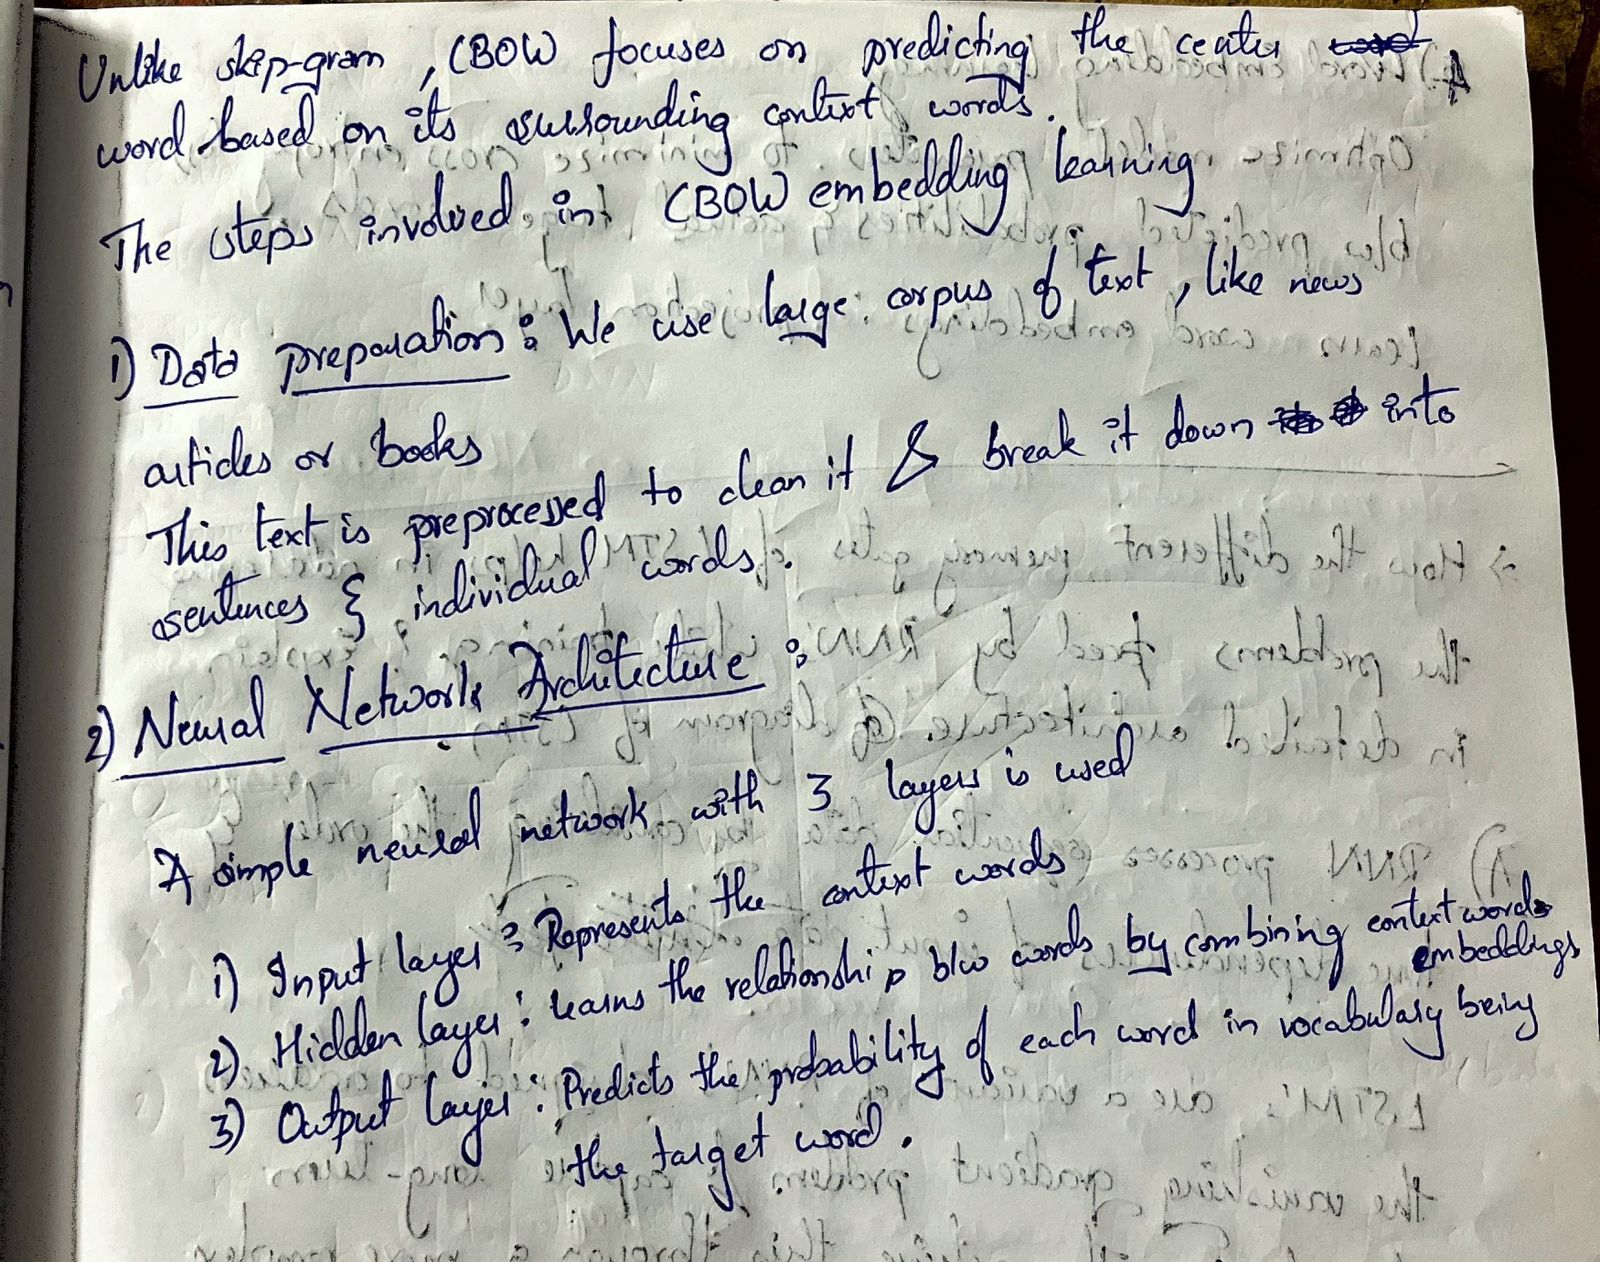 Unlike skip-gram, CBOW focuses on predicting the center
word based on its surrounding context words.
The steps involved in CBOW embedding learning
1) Data preparation : We use large corpus of text, like news
articles or books
This text is preprocessed to clean it & break it down into
sentences & individual words.
2) Neural Network Architecture :
A simple neural network with 3 layers is used
1) Input layer : Represents the context words
2) Hidden layer : learns the relationship b/w words by combining context words
embeddings
3) Output layer : Predicts the probability of each word in vocabulary being
the target word.